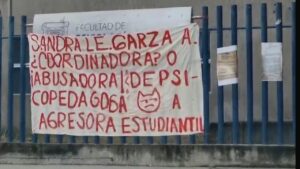 FACULTAD DE
SANDRA LE. GARZA A.
¿COORDINADORA? O
¡ABUSADORA! DE PSI-
COPEDAGOGÍA A
AGRESORA ESTUDIANTIL